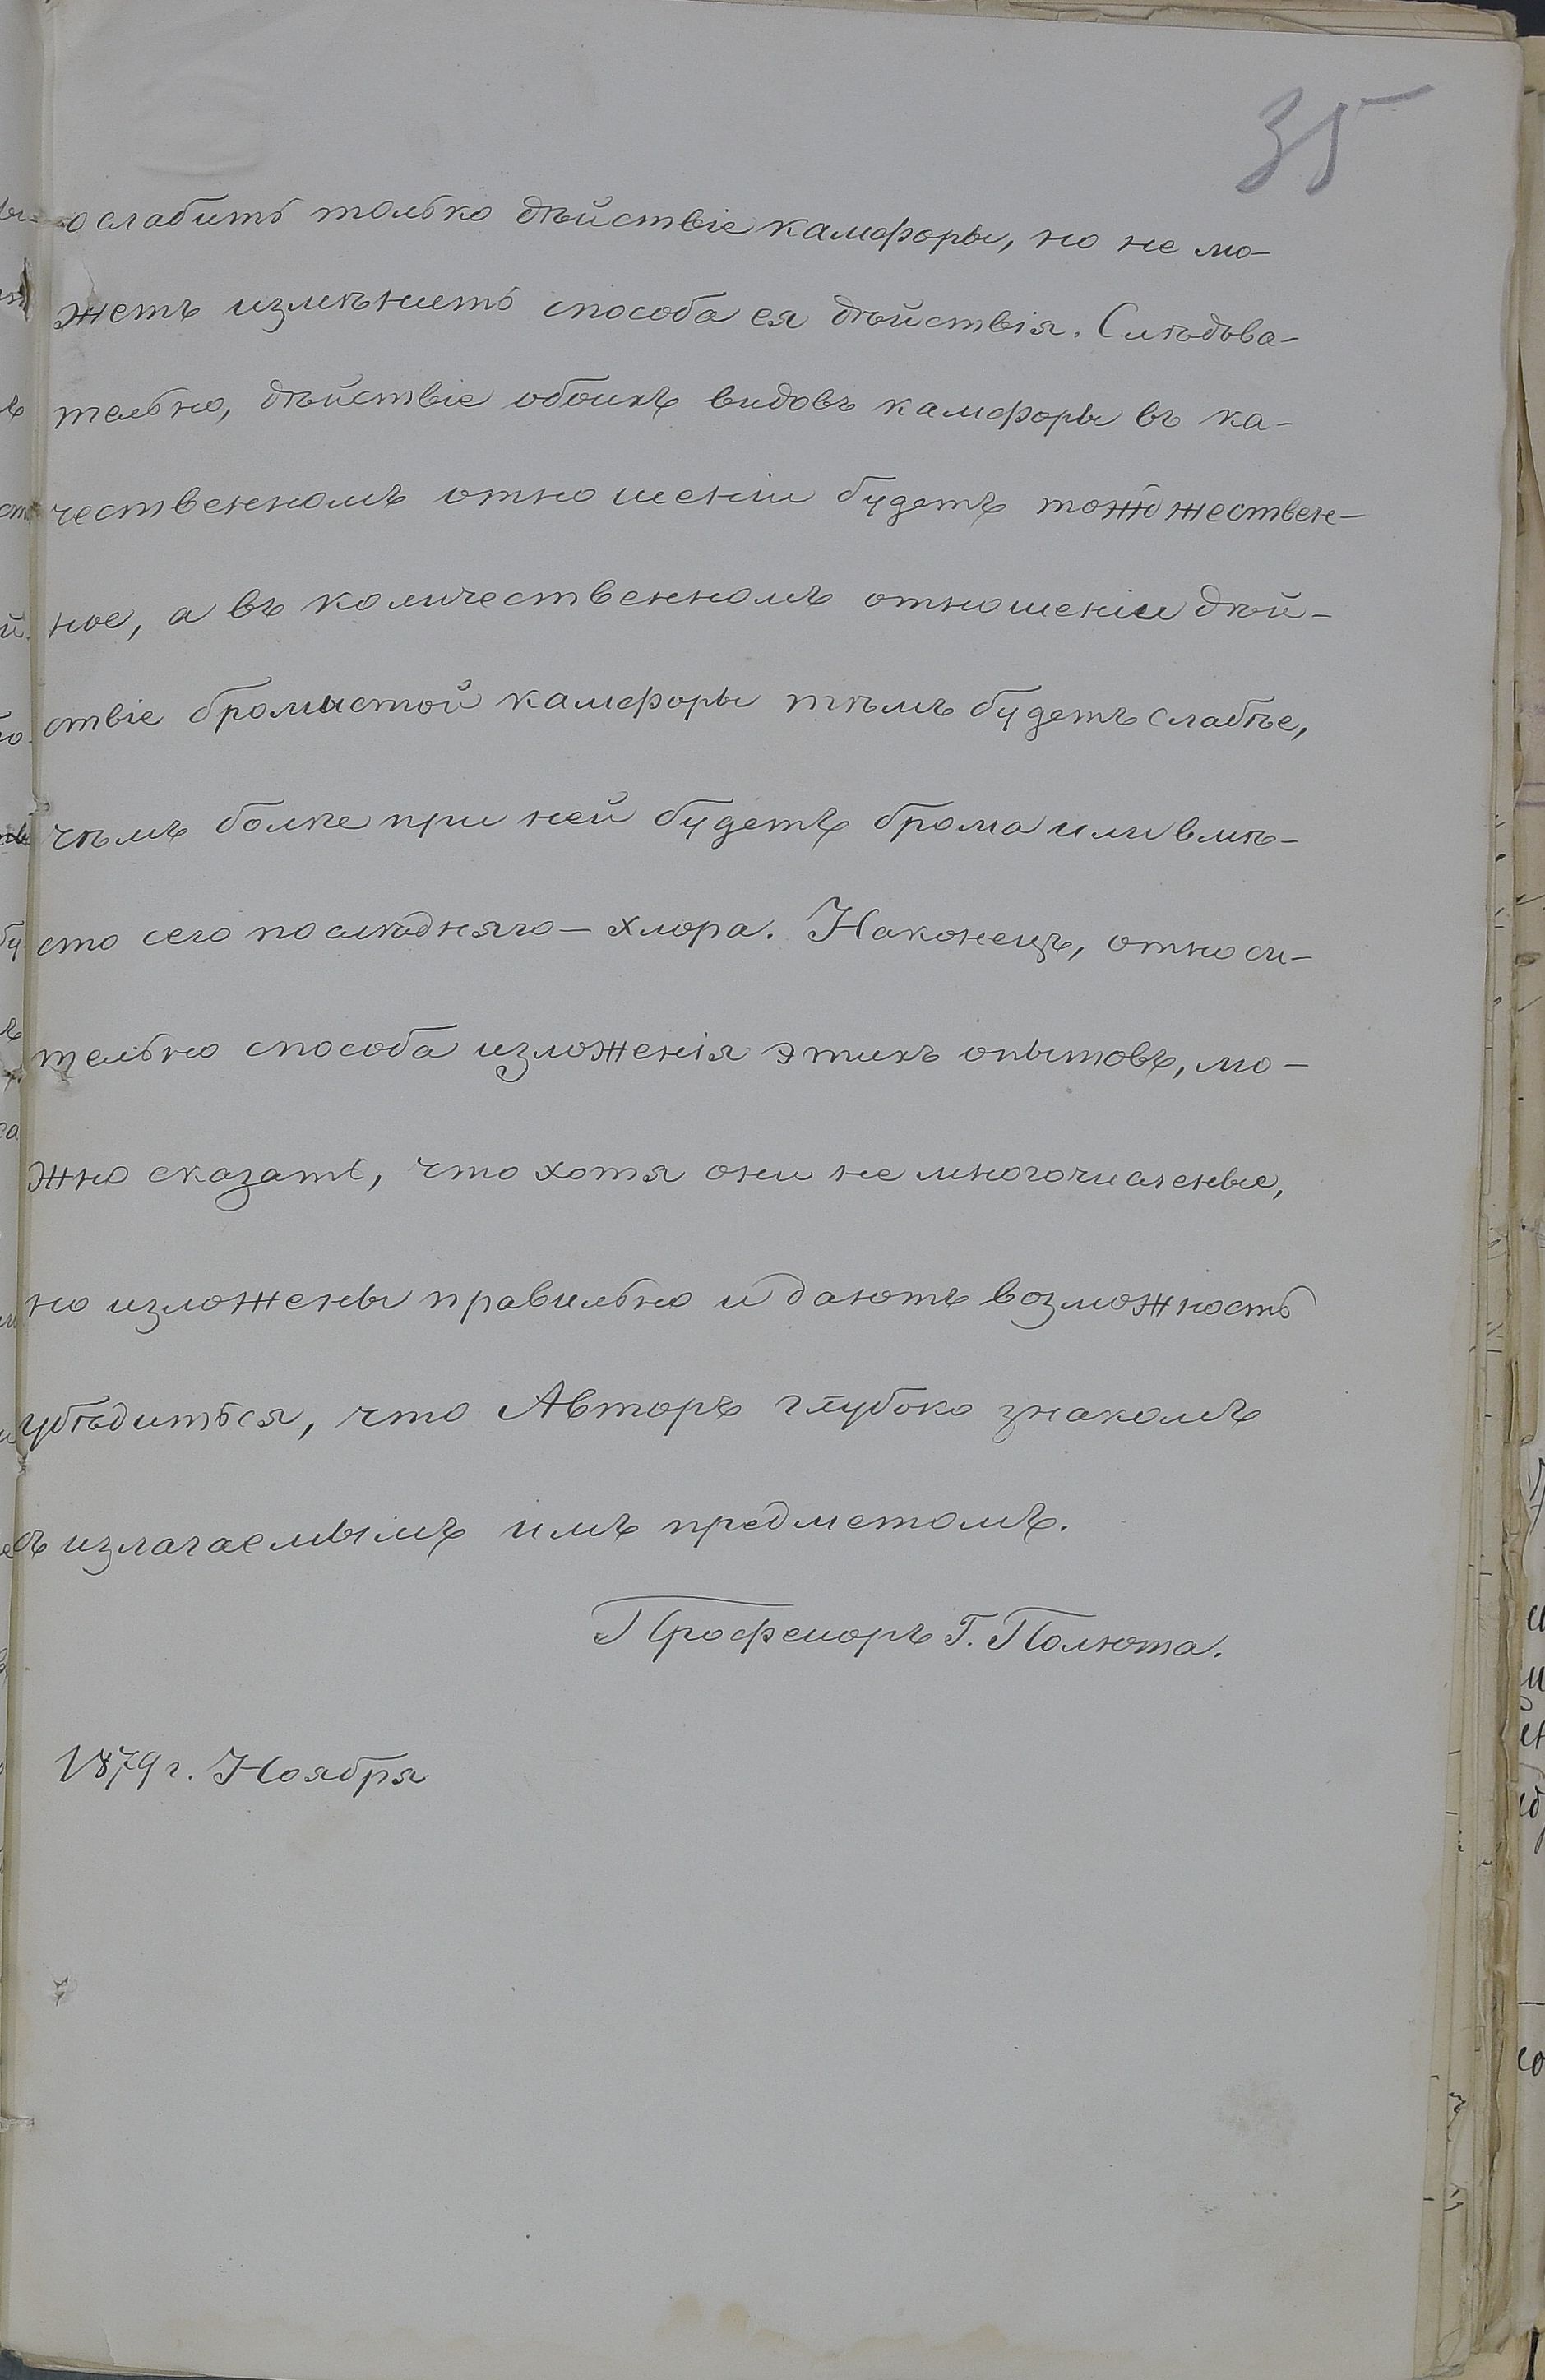 35
ослабить только дѣйствіе камфоры, но не мо-
жетъ измѣнить способа ея дѣйствія. Слѣдова-
тельно, дѣйствіе обоихъ видовъ камфоры въ ка-
чественномъ отношеніи будетъ тождествен-
ное, а въ количественномъ отношеніи дѣй-
ствіе бромистой камфоры тѣмъ будетъ слабѣе,
чѣмъ болѣе при ней будетъ брома или вмѣ-
сто сего послѣдняго — хлора. Наконецъ, относи-
тельно способа изложенія этихъ опытовъ, мо-
жно сказать, что хотя они не многочисленые,
но изложены правильно и даютъ возможность
убѣдиться, что Авторъ глубоко знакомъ
съ излагаемымъ имъ предметомъ.
Професоръ Г. Полюта.
1879 г. Ноября